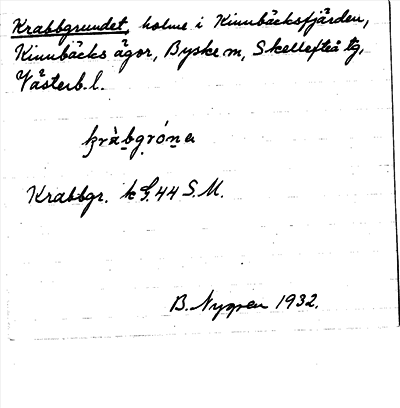 Krabbgrundet, holme i Kinnbäcksfjärden,
Kinnbäcks ägor, Byske m, Skellefteå tg,
Västerb. l.
kràbgróna
Krabbgr. k 44 S.M.
B. Nygren 1932.